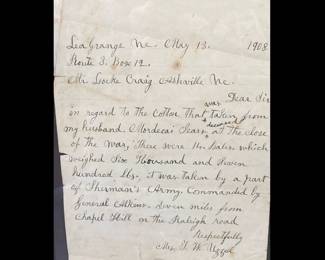 LaGrange Nc. May 13. 1908
Route 3. Box 12.
Mr. Locke Craig Ashville Nc.
Dear Sir
in regard to the Cotton that was taken from
my husband Mordecai deceased at the close
of the war, There were 14 bales which
weighed Six thousand and seven
hundred lbs. it was taken by a part
of Sherman's Army. Commanded by
General Atkins. Seven miles from
Chapel Hill on the Raleigh road
Respectfully
Mrs. W.